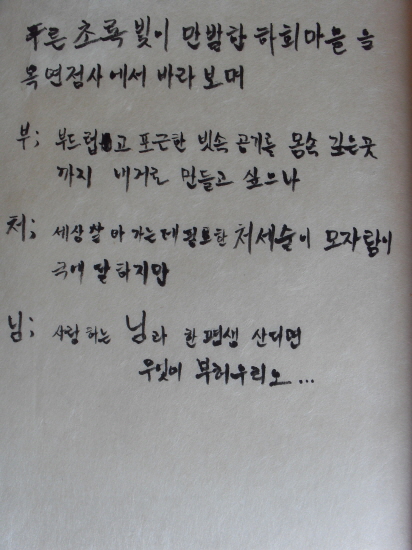 푸른 초록 빛이 만발한 하회마을 을
옥연정사 에서 바라 보며
부; 부드럽고 포근한 빗속 공기를 몸속 깊은곳
까지 내거로 만들고 싶으나
처; 세상 살 아 가는 데 필요한 처세술이 모자람이
극에 달 하지만
님; 사랑 하는 님과 한평생 산다면
무엇이 부러우리오...